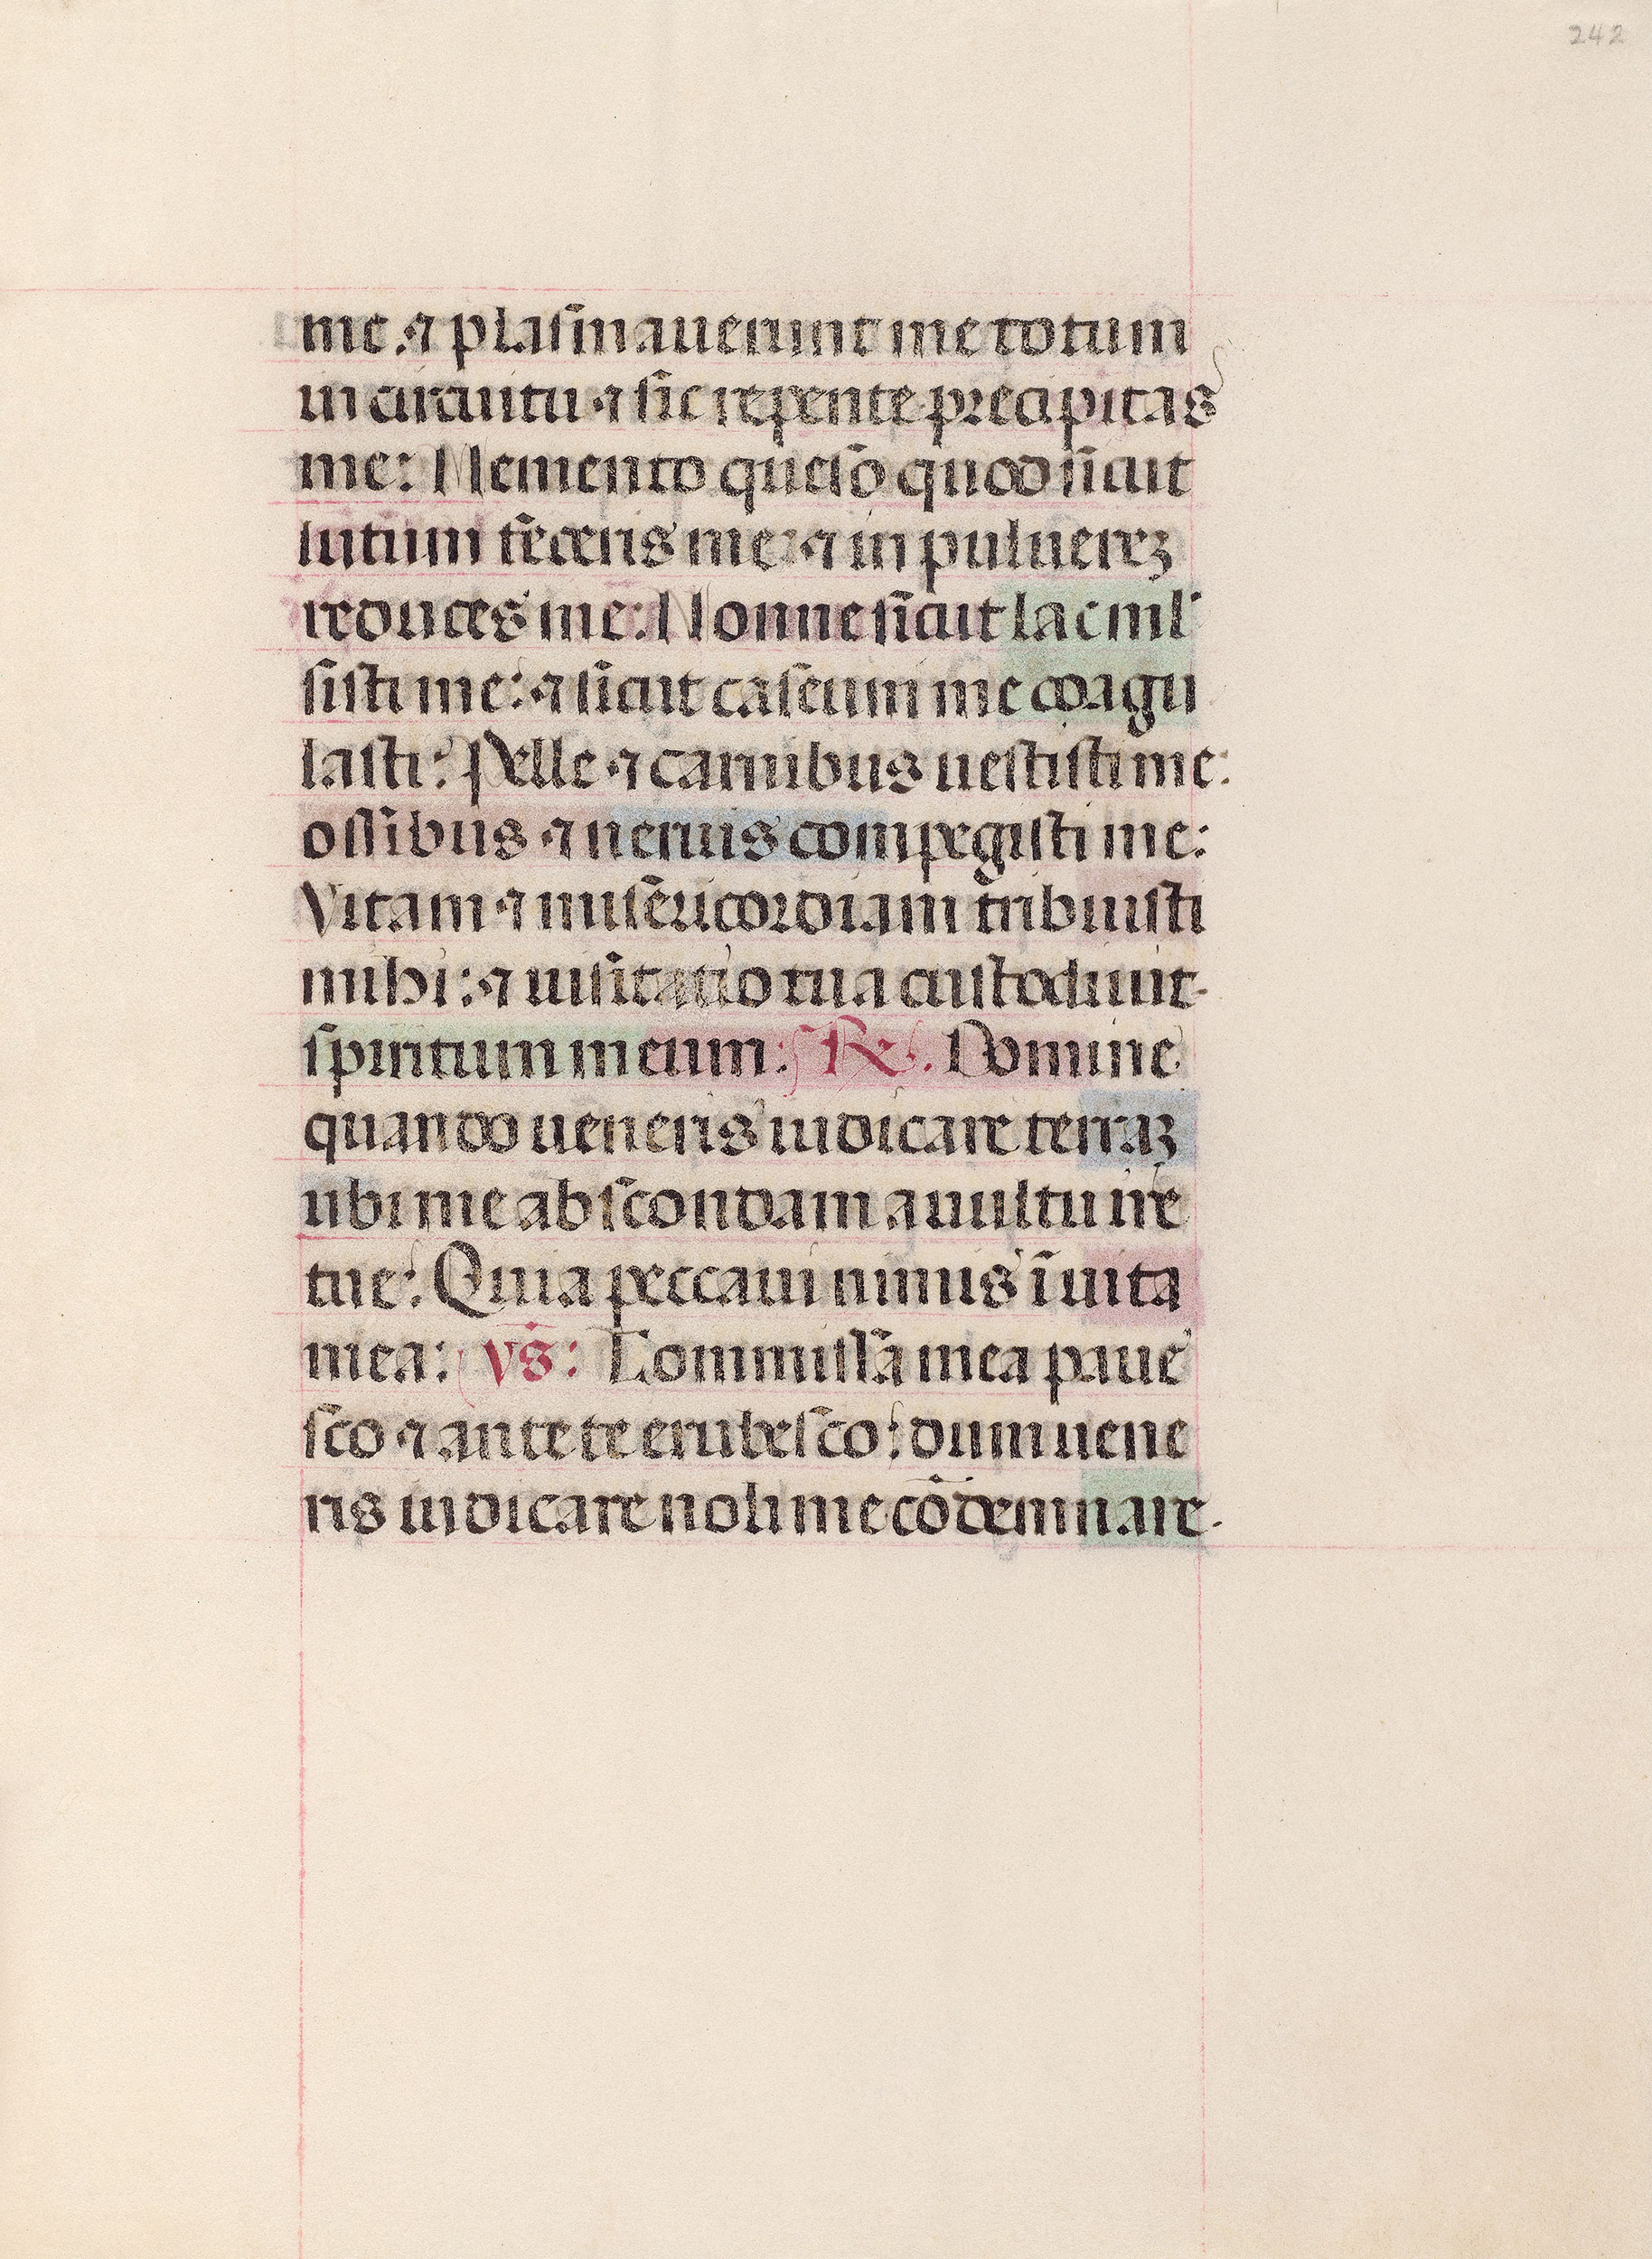 242
me. ⁊ plasmauerunt me totum
in circuitu ⁊ sic repente precipitas
me: Memento queso quod sicut
lutum feceris me: ⁊ in puluerez
reduces me: Nonne sicut lac mul
sisti me: ⁊ sicut caseum me coagu
lasti: Pelle ⁊ carnibus uestisti me:
ossibus ⁊ neruis compegisti me:
Vitam ⁊ misericordiam tribuisti
mihi: ⁊ uisitatio tua custodiuit
spiritum meum: R. Domine
quando ueneris iudicare terraz
ubi me abscondam a uultu ire
tue: Quia peccaui nimis ī uita
mea: vs: Commissa mea paue
sco ⁊ ante te erubesco: dum uene
ris iudicare noli me cōdemnare.